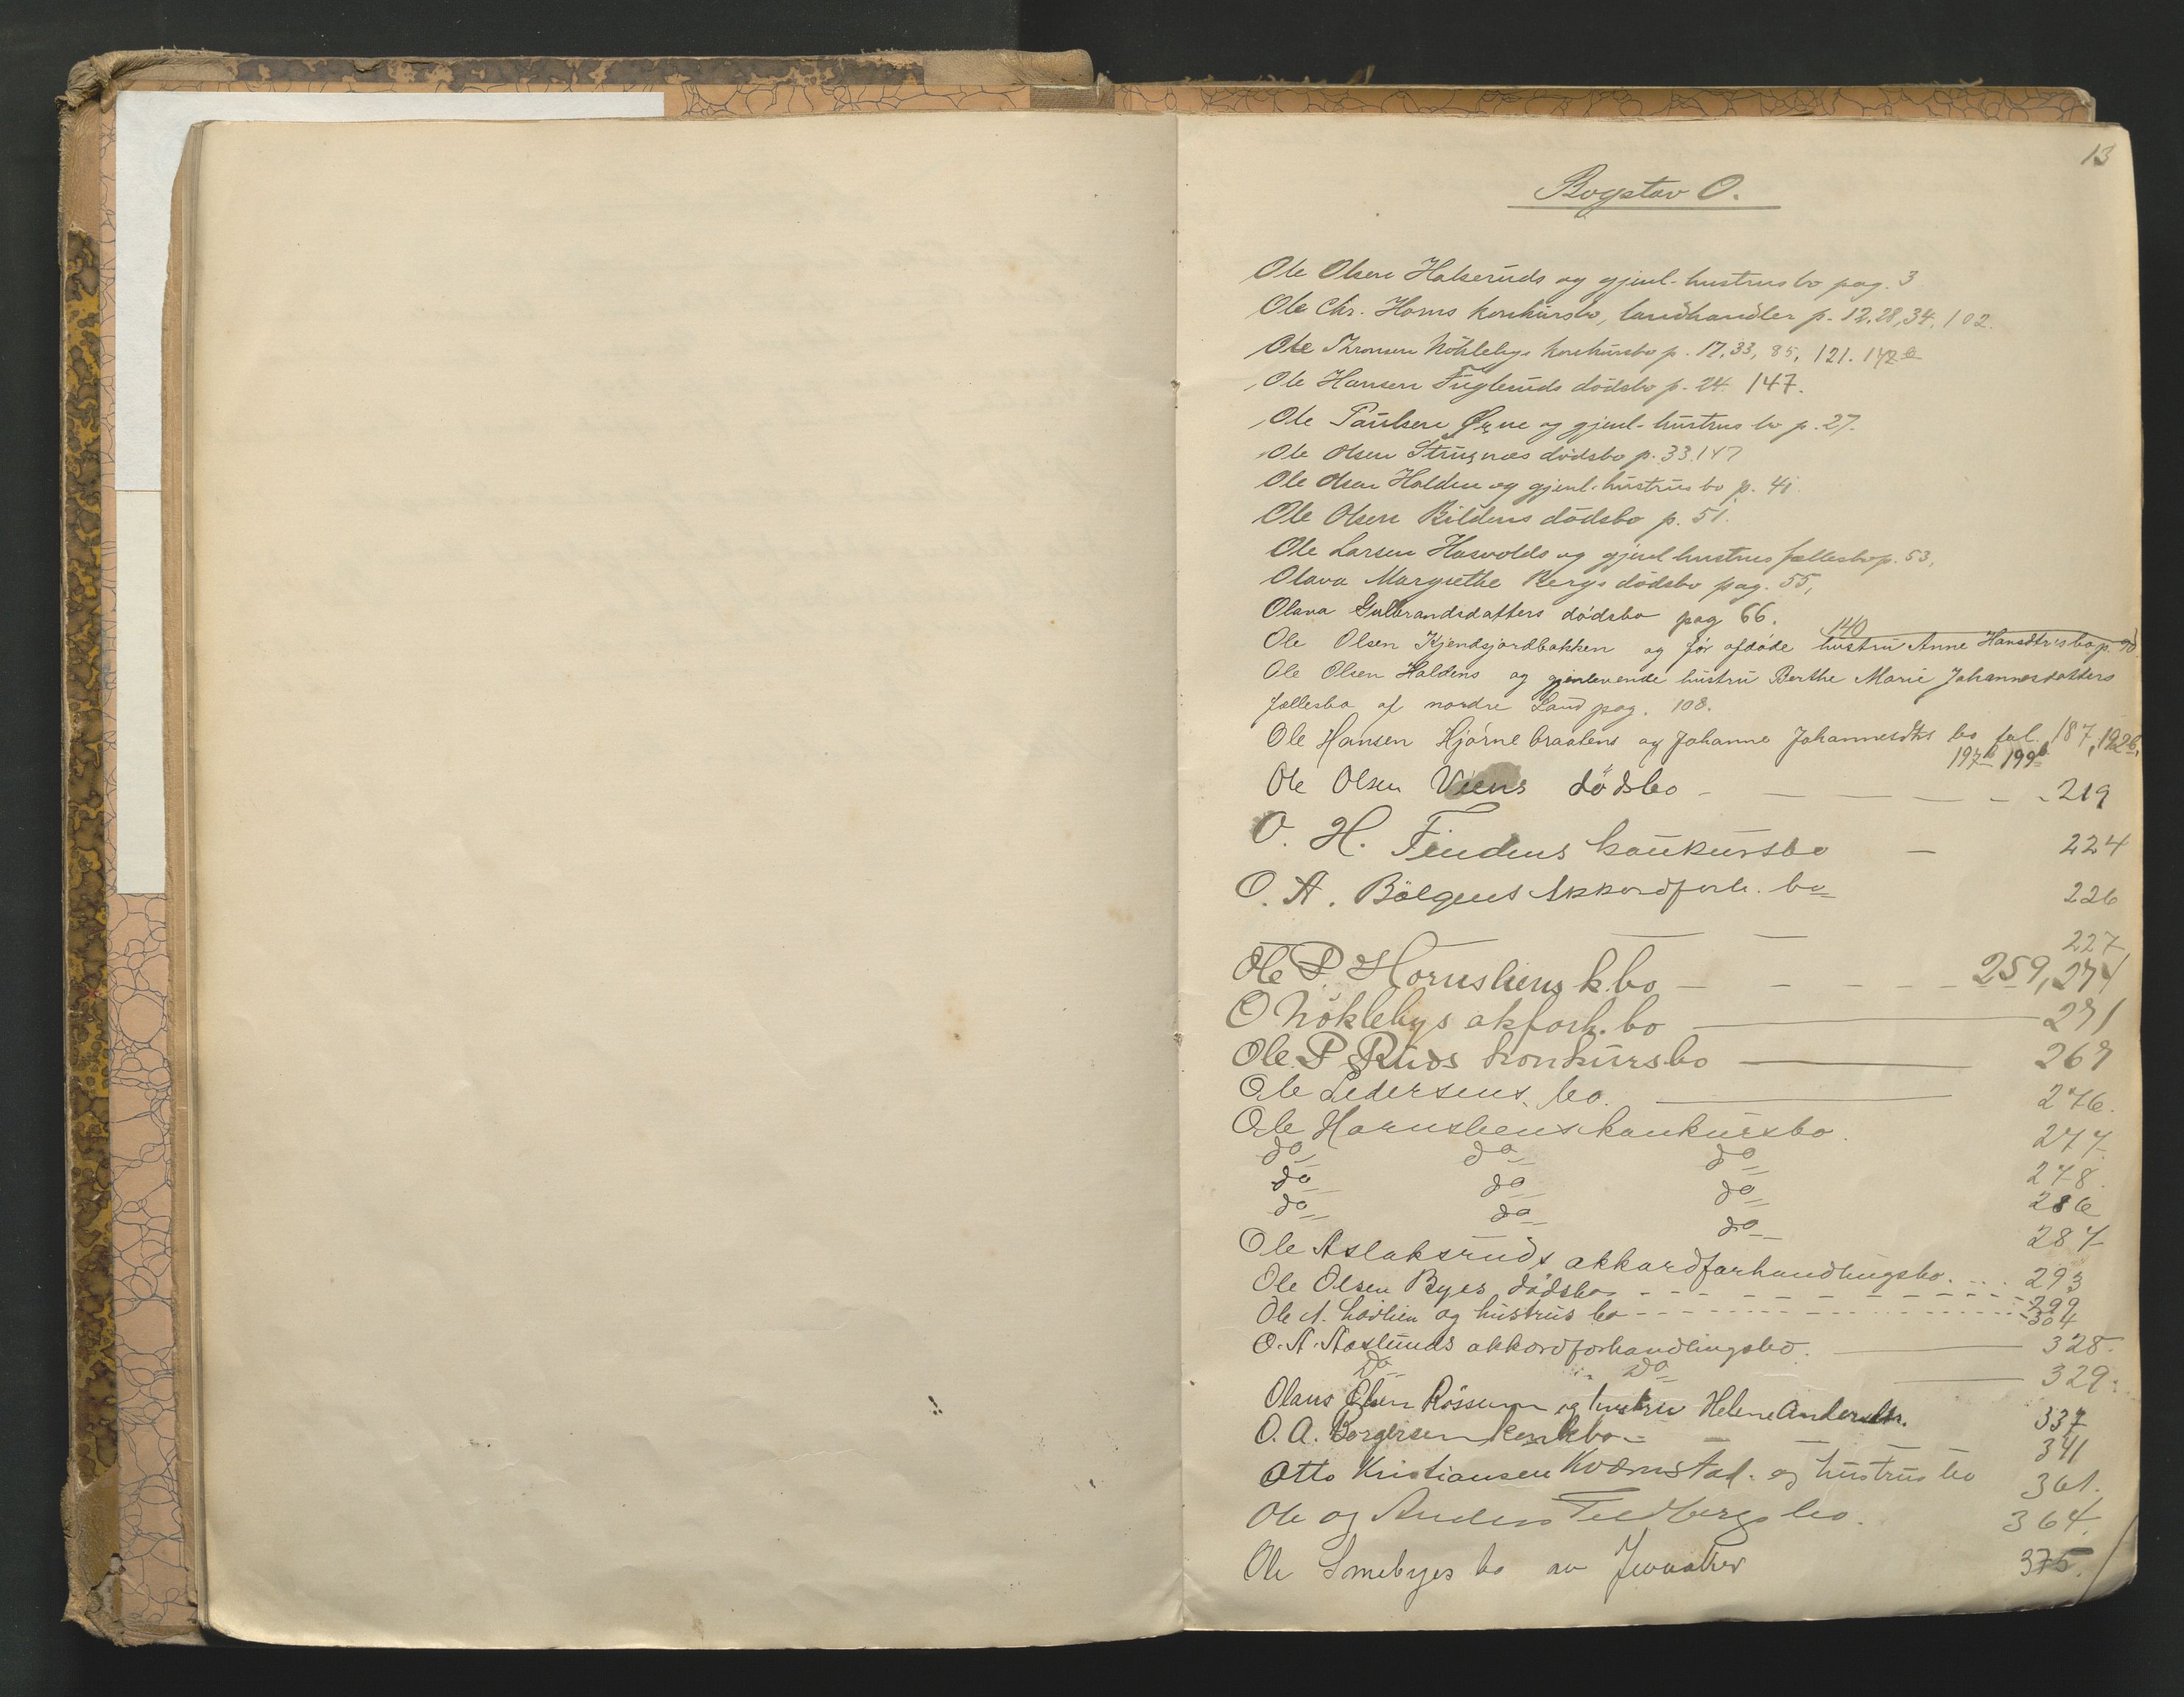 13
Bogstav O.
Ole Olsen Halseruds og gjenl. hustrus bo pag. 3
Ole Chr. Homs konkursbo, landhandler p. 12, 28, 34, 102.
Ole Thronsen Nöklebys konkursbo p. 17. 33, 85, 121. 142 b
Ole Hansen Fuglesuds dödsbo p. 24. 147.
Ole Paulsen og gjenl. hustrus bo p. 27.
Ole Olsen dödsbo p. 33. 147
Ole Olsen Halden og gjenl. hustrus bo p. 41.
Ole Olsen Bildens dödsbo p. 51.
Ole Larsen Hasvolds og gjenl hustrus fællesbo p. 53,
Olava Margrethe Bergs dödsbo pag. 55,
Olava Gulbrandsdatters dödsbo pag 66.
140
Ole Olsen Kjendsjordbakken og för afdöde hustru Anne Hansdtrs bo p. 90
Ole Olsen Haldens og gjenlevende hustru Berthe Marie Johannesdatters
fællesbo af nordre Land pag. 108.
Ole Hansen Hjörnebraatens og Johanne Johannesdtrs bo fol. 187, 192 b,
197 b 199 b
Ole Olsen Viens dödsbo - — — — - - 219
O. H. Findens konkursbo — 224
O. A. Bölgens Akkordforh. bo 226
— — — 227
Ole P. Hornsliens k.bo - - - - - - 259, 274
O Nöklebys akforh. bo — 271
Ole P Ruds konkursbo — 267
Ole Pedersens bo. — 276.
Ole Hornsliens konkursbo. 277.
do do do 278.
do do do 286
do do do 287
Ole Aslaksruds akkordforhandlingsbo. ... 293
Ole Olsen Byes dödsbo - - - - - - - 299
Ole A. Lödlien og hustrus bo - - - - - - - 304
O. A. Aaslunds akkordforhandlingsbo. — 328.
Do " Do — 329.
Olaus Olsen Rössum og hustru Helene Andersdtr. 337
O. A. Borgersen konkbo - — — — 341
Otto Kristiansen Kvœrnstad. og hustrus bo 361.
Ole og Anders Feedbergs bo. 364.
Ole Smebyes bo av Jevnaker 375.